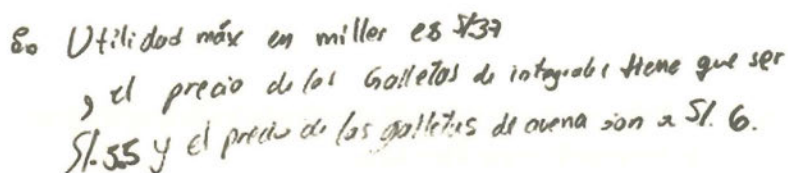 ∴ Utilidad máx en miller es S/.37
, el precio de las Galletas de integrales tiene que ser
S/.5.5 y el precio de las galletas de avena son a S/. 6.